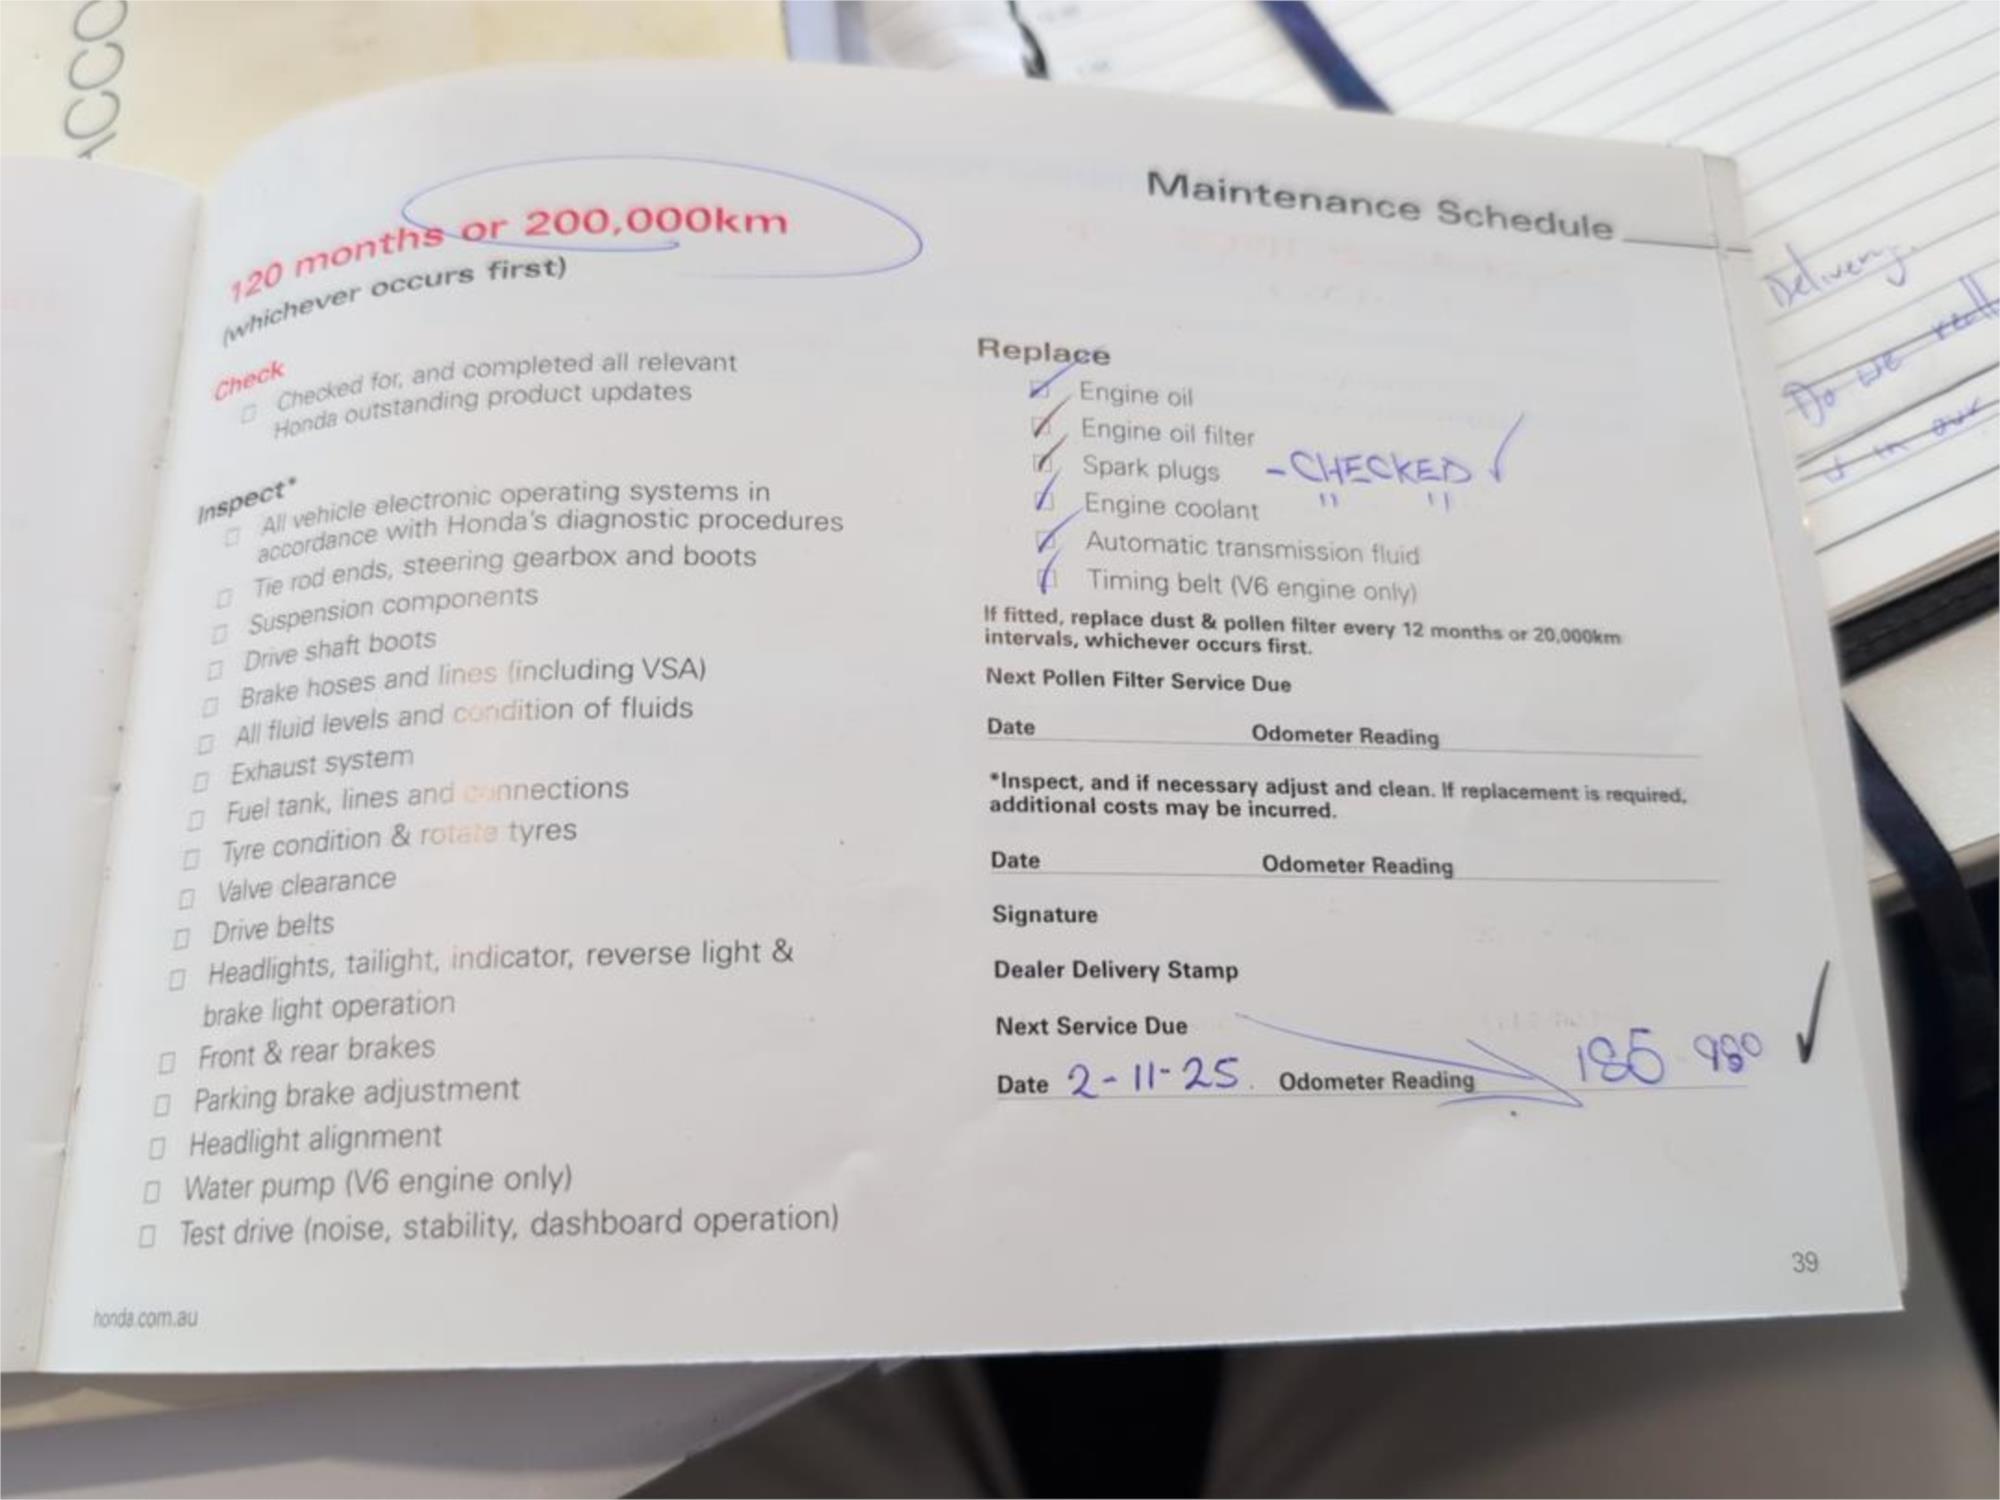 ACCO
Maintenance Schedule
120 months or 200,000km
(whichever occurs first)
Check
Checked for, and completed all relevant
Honda outstanding product updates
Inspect*
All vehicle electronic operating systems in
accordance with Honda's diagnostic procedures
Tie rod ends, steering gearbox and boots
Suspension components
Drive shaft boots
Brake hoses and lines (including VSA)
All fluid levels and condition of fluids
Exhaust system
Fuel tank, lines and connections
Tyre condition & rotate tyres
Valve clearance
Drive belts
Headlights, tailight, indicator, reverse light &
brake light operation
Front & rear brakes
Parking brake adjustment
Headlight alignment
Water pump (V6 engine only)
Test drive (noise, stability, dashboard operation)
honda.com.au
Replace
Engine oil
Engine oil filter
Spark plugs - CHECKED ✓
Engine coolant " "
Automatic transmission fluid
Timing belt (V6 engine only)
If fitted, replace dust & pollen filter every 12 months or 20,000km
intervals, whichever occurs first.
Next Pollen Filter Service Due
Date Odometer Reading
*Inspect, and if necessary adjust and clean. If replacement is required,
additional costs may be incurred.
Date Odometer Reading
Signature
Dealer Delivery Stamp
Next Service Due
Date 2-11-25. Odometer Reading 185 980 ✓
39
Delivery.
Do we
in our